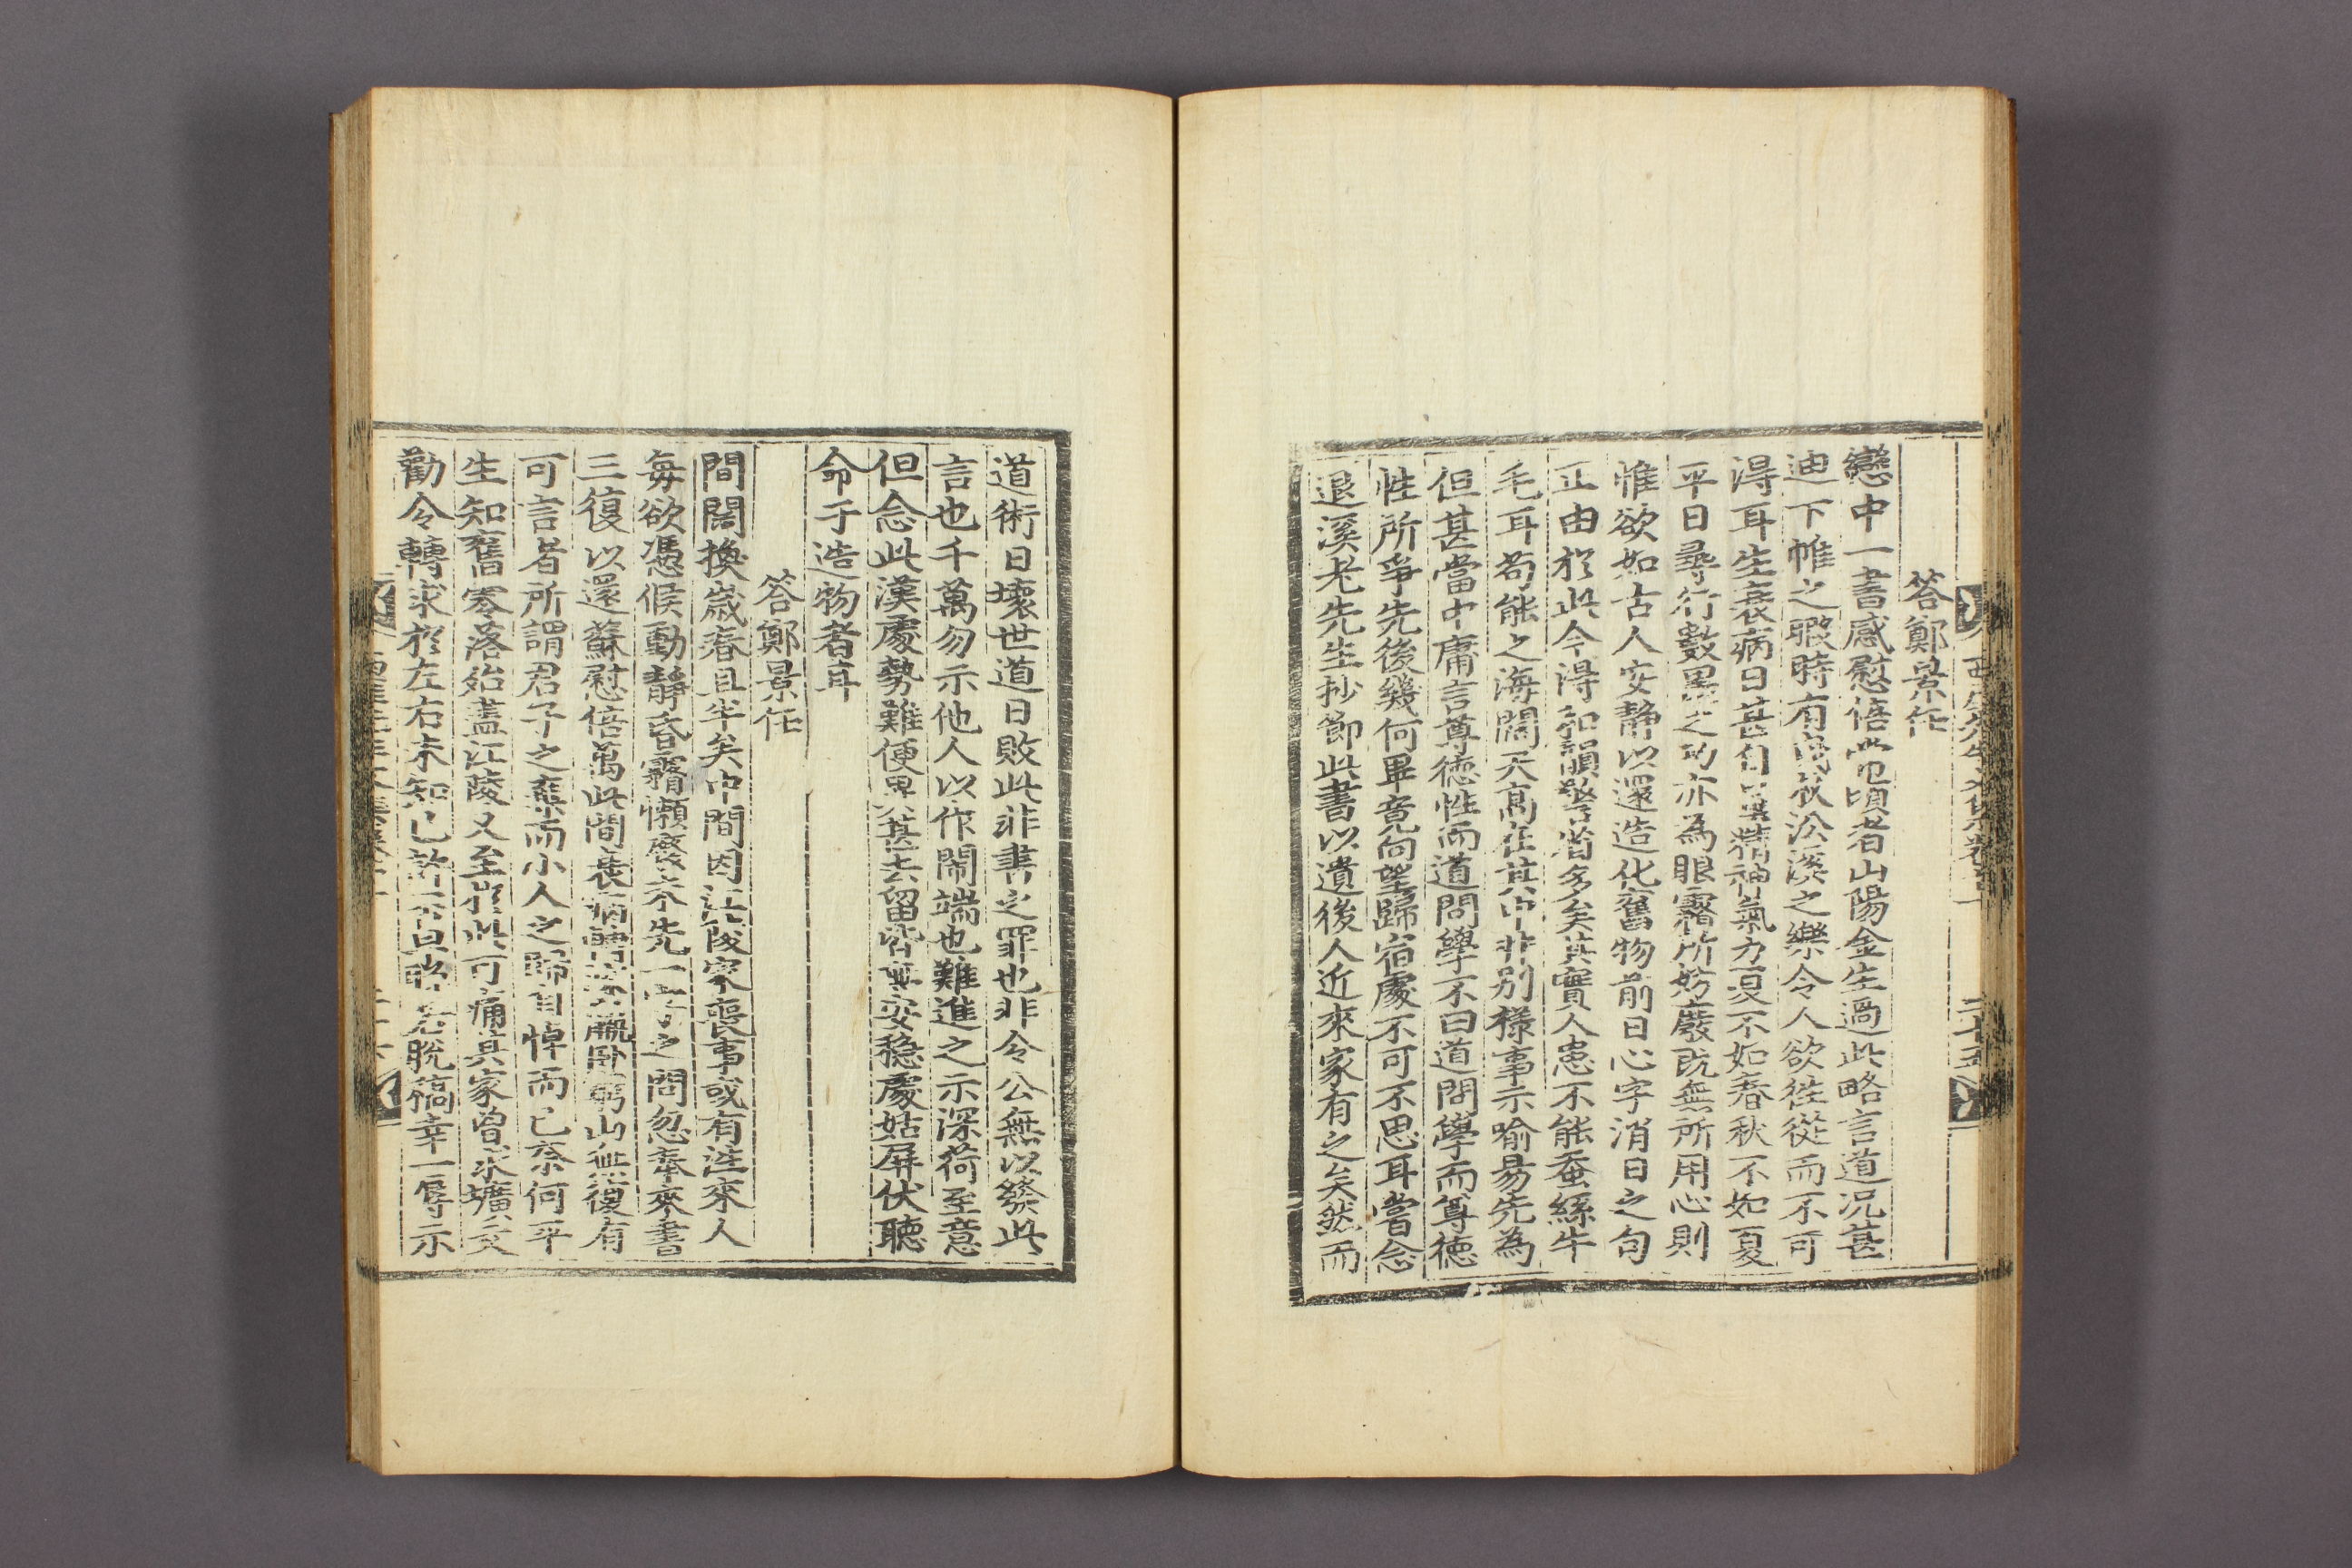 答鄭景任
戀中一書感慰倍常頃者山陽金生過此略言道況甚
迪下帷之暇時有濠之樂令人欲往從而不可
得耳生衰病日甚精神氣力夏不如春秋不如夏
平日尋行數墨之功亦為眼霧所妨廢旣無所用心則
惟欲如古人安靜以還造化舊物前日心字消日之句
正由於此今得和韻警省多矣其實人患不能蚕絲牛
毛耳苟能之海闊天高在其中非別樣事示喻易先為
但甚當中庸言尊德性而道問學不曰道問學而尊德
性所爭先後幾何畢竟向望歸宿處不可不思耳嘗念
退溪老先生抄節此書以遺後人近來家有之矣然而
道術日壞世道日敗此非書之罪也非令公無以發此
言也千萬勿示他人以作鬧端也難進之示深荷至意
但念此漢處勢難便畏甚去留皆無安穩處姑屏伏聽
命于造物者耳
答鄭景任
間闊換歲春且半矣中間因江陵家喪事或有往來人
每欲憑候動靜昏霧懶廢未先一字之問忽奉來書
三復以還蘇慰倍萬此間衰病羸臥窮山無復有
可言者所謂君子之棄而小人之歸自悼而已奈何平
生知舊零落殆盡江陵又至於此可痛其家曾求壙文
勸令轉求於左右未知已許否脫稿幸一辱示